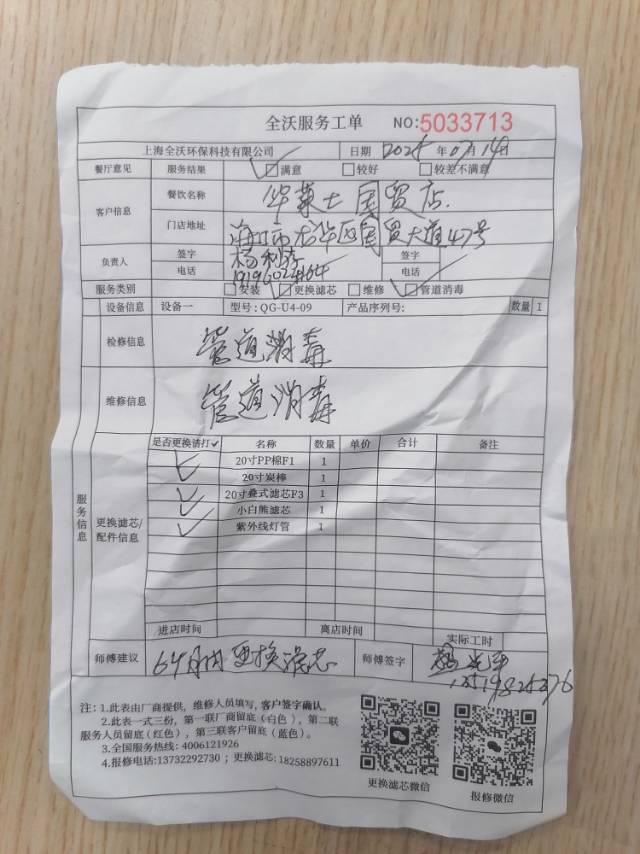 全沃服务工单 NO:5033713
上海全沃环保科技有限公司 日期 年 07月14日
餐厅意见 服务结果 满意 较好 较差不满意
客户信息 餐饮名称 华莱士国贸店.
门店地址 海口市龙华区国贸大道47号
负责人 签字 杨 签字
电话 电话
服务类别 安装 更换滤芯 维修 管道消毒
设备信息 设备一 型号: QG-U4-09 产品序列号: 数量 1
检修信息 管道消毒
维修信息 管道消毒
服务信息
更换滤芯/配件信息
是否更换请打✓ 名称 数量 单价 合计 备注
✓ 20寸PP棉F1 1
20寸炭棒 1
✓ 20寸叠式滤芯F3 1
✓ 小白熊滤芯 1
✓ 紫外线灯管 1
进店时间 离店时间 实际工时
师傅建议 6个月内更换滤芯 师傅签字
注: 1.此表由厂商提供, 维修人员填写, 客户签字确认。
2.此表一式三份, 第一联厂商留底(白色), 第二联
服务人员留底(红色), 第三联客户留底(蓝色)。
3.全国服务热线: 4006121926
4.报修电话:13732292730 ; 更换滤芯: 18258897611
更换滤芯微信 报修微信